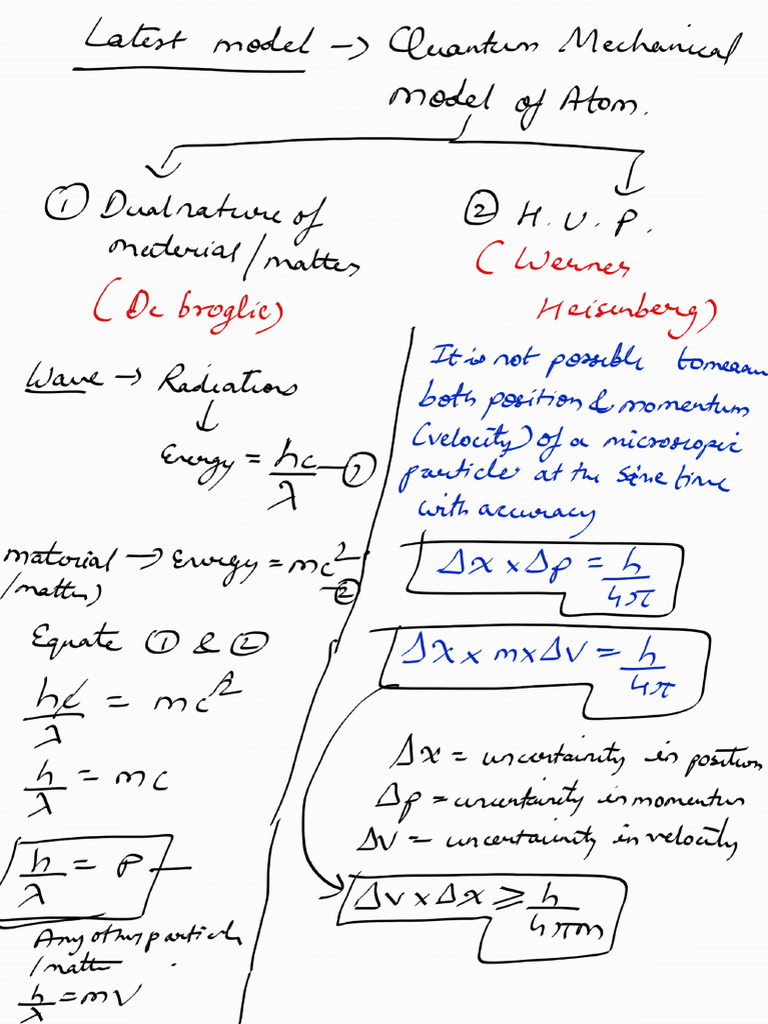 Latest model → Quantum Mechanical
model of Atom.
① Dual nature of
material/matter
(De broglie)
Wave → Radiations
↓
Energy = hc/λ — ①
material → Energy = mc² — ②
/matter)
Equate ① & ②
hc/λ = mc²
h/λ = mc
h/λ = p —
Any other particle
/matter.
h/λ = mv
② H.U.P.
(Werner
Heisenberg)
It is not possible to measure
both position & momentum
(velocity) of a microscopic
particle at the same time
with accuracy
Δx × Δp = h/4π
Δx × m × Δv = h/4π
Δx = uncertainity in position
Δp = uncertainity in momentum
Δv = uncertainity in velocity
Δv × Δx ≥ h/4πm